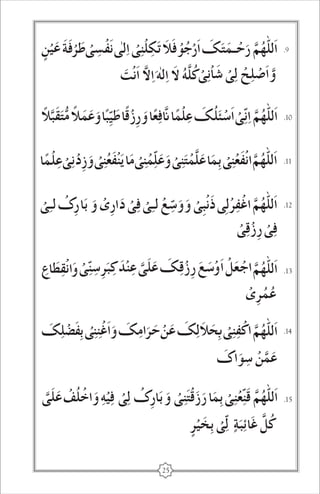 9. اَللّٰهُمَّ رَحْمَتَـكَ اَرْجُوْ فَلَا تَكِلْنِیْ اِلٰی نَفْسِیْ طَرْفَةَ عَیْنٍ
وَّ اَصْلِحْ لِیْ شَأْنِیْ كُلَّهُ لَا اِلٰهَ اِلَّا اَنْتَ
10. اَللّٰهُمَّ اِنِّیْ اَسْئَلُكَ عِلْمًا نَّافِعًا وَرِزْقًا طَیِّبًا وَعَمَلًا مُّتَقَبَّلًا
11. اَللّٰهُمَّ انْفَعْنِیْ بِمَا عَلَّمْتَنِیْ وَعَلِّمْنِیْ مَا یَنْفَعُنِیْ وَزِدْنِیْ عِلْمًا
12. اَللّٰهُمَّ اغْفِرْلِیْ ذَنْبِیْ وَ وَسِّعْ لِـیْ فِیْ دَارِیْ وَ بَارِكْ لِـیْ
فِیْ رِزْقِیْ
13. اَللّٰهُمَّ اجْعَلْ اَوْسَعَ رِزْقِكَ عَلَیَّ عِنْدَ كِبَرِ سِنِّیْ وَانْقِطَاعِ
عُمُرِیْ
14. اَللّٰهُمَّ اكْفِنِیْ بِحَلَالِكَ عَنْ حَرَامِكَ وَاَغْنِنِیْ بِفَضْلِكَ
عَمَّنْ سِوَاكَ
15. اَللّٰهُمَّ قَنِّعْنِیْ بِمَا رَزَقْتَنِیْ وَ بَارِكْ لِیْ فِیْهِ وَاخْلُفْ عَلَیَّ
كُلَّ غَائِبَةٍ لِّیْ بِخَیْرٍ
25